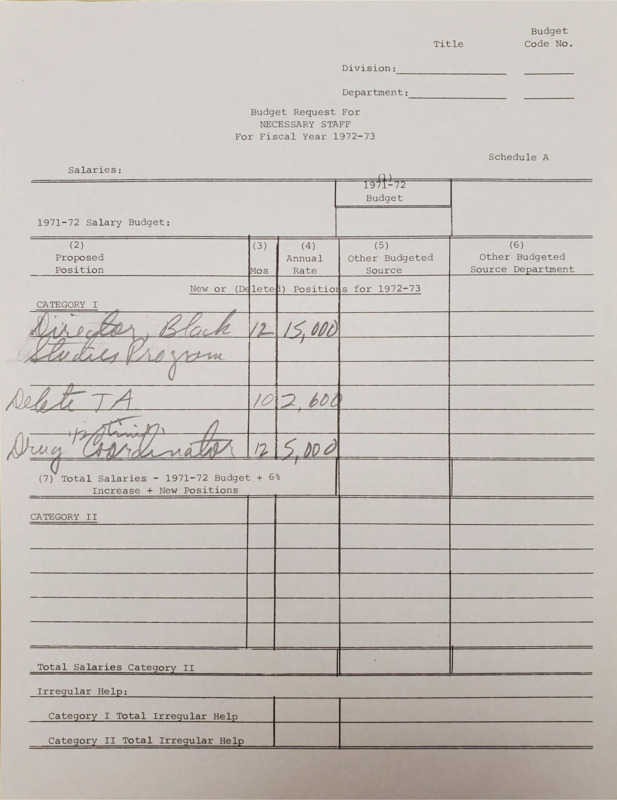 Budget
Title Code No.
Division:
Department:
Budget Request For
NECESSARY STAFF
For Fiscal Year 1972-73
Schedule A
Salaries:
(1)
1971-72
Budget
1971-72 Salary Budget:
(2) (3) (4) (5) (6)
Proposed Annual Other Budgeted Other Budgeted
Position Mos Rate Source Source Department
New or (Deleted) Positions for 1972-73
CATEGORY I
Director, Black 12 15,000
Studies Program
Delete TA 10 2,600
1/2 time
Drug Coordinator 12 5,000
(7) Total Salaries - 1971-72 Budget + 6%
Increase + New Positions
CATEGORY II
Total Salaries Category II
Irregular Help:
Category I Total Irregular Help
Category II Total Irregular Help